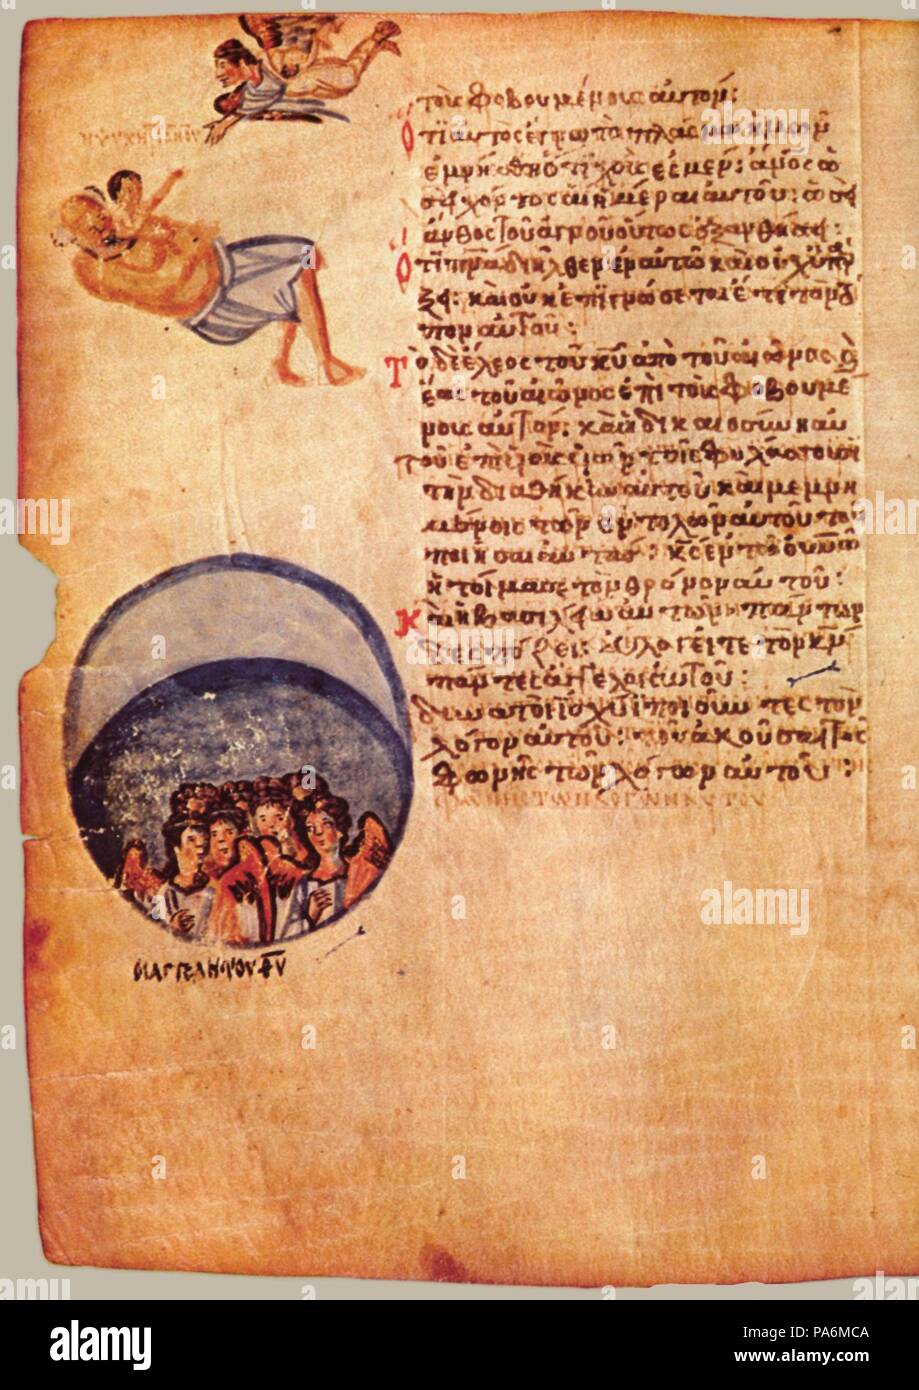 τοῖς φοβουμένοις αὐτόν:
Ὅτι αὐτὸς ἔγνω τὸ πλάσμα ἡμῶν
ἐμνήσθη ὅτι χοῦς ἐσμέν: ἄνος ὡ
σεὶ χόρτος αἱ ἡμέραι αὐτοῦ: ὡσεὶ
ἄνθος τοῦ ἀγροῦ οὕτως ἐξανθήσει:
Ὅτι πνα διῆλθεν ἐν αὐτῶ καὶ οὐχ ὑπάρ
ξει: καὶ οὐκ ἐπιγνώσεται ἔτι τὸν τό
πον αὐτοῦ:
Τὸ δὲ ἔλεος τοῦ κυ ἀπὸ τοῦ αἰῶνος καὶ
ἕως τοῦ αἰῶνος ἐπὶ τοὺς φοβουμέ
νους αὐτόν: καὶ ἡ δικαιοσύνη αὐ
τοῦ ἐπὶ υἱοῖς υἱῶν τοῖς φυλάσσουσι
τὴν διαθήκην αὐτοῦ καὶ μεμνη
μένοις τῶν ἐντολῶν αὐτοῦ τοῦ
ποιῆσαι αὐτάς: κς ἐν τῶ οὐνῶ
ἡτοίμασε τὸν θρόνον αὐτοῦ:
Καὶ ἡ βασιλεία αὐτοῦ πάντων
δεσπόζει: εὐλογεῖτε τὸν κν
πάντες οἱ ἄγγελοι αὐτοῦ:
δυνατοὶ ἰσχύι ποιοῦντες τὸν
λόγον αὐτοῦ: τοῦ ἀκοῦσαι τῆς
φωνῆς τῶν λόγων αὐτοῦ:
ΟΙ ΑΓΓΕΛΗ ΤΟΥ ΘΥ
alamy
Image ID: PA6MCA
www.alamy.com